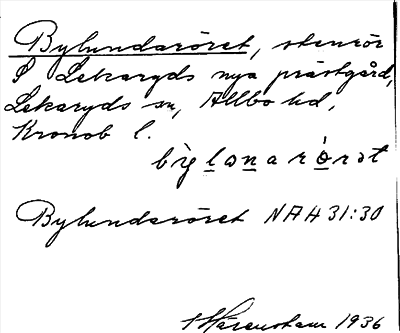 Bylundsröret, stenrör
I Lekaryds nya prästgård,
Lekaryds sn, Allbo hd,
Kronob l.
Bylundsröret NAH 31:30
1936